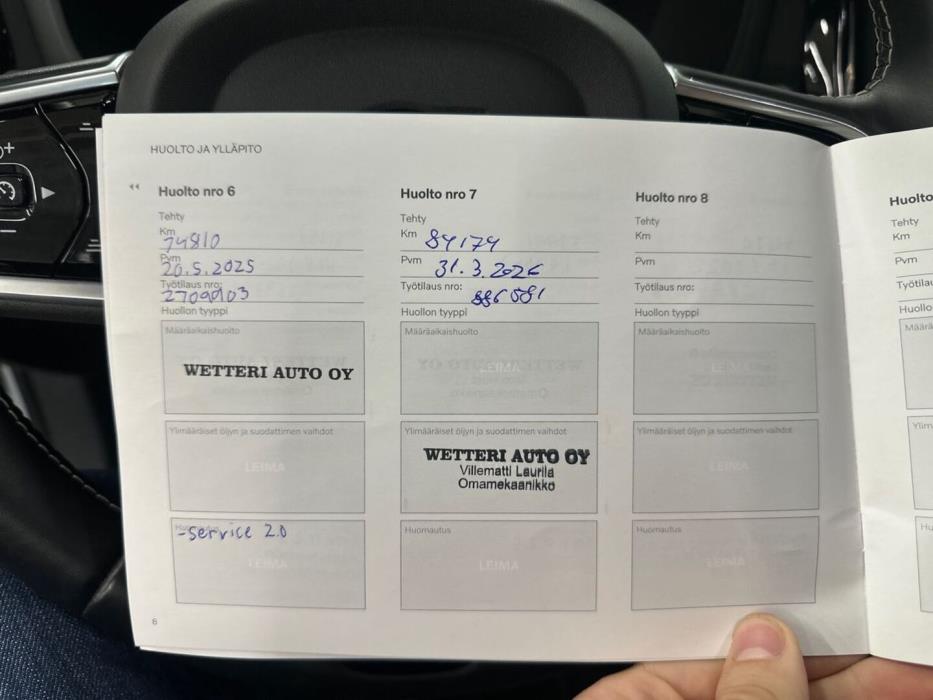 HUOLTO JA YLLÄPITO
Huolto nro 6
Tehty
Km
74810
Pvm
20.5.2025
Työtilaus nro:
Huollon tyyppi
Määräaikaishuolto
WETTERI AUTO OY
Ylimääräiset öljyn ja suodattimen vaihdot
LEIMA
-service 2.0
LEIMA
6
Huolto nro 7
Tehty
Km 84174
Pvm 31.3.2026
Työtilaus nro: 886581
Huollon tyyppi
Määräaikaishuolto
LEIMA
Ylimääräiset öljyn ja suodattimen vaihdot
WETTERI AUTO OY
Villematti Laurila
Omamekaanikko
Huomautus
LEIMA
Huolto nro 8
Tehty
Km
Pvm
Työtilaus nro:
Huollon tyyppi
Määräaikaishuolto
LEIMA
Ylimääräiset öljyn ja suodattimen vaihdot
LEIMA
Huomautus
LEIMA
Huolto
Tehty
Km
Pvm